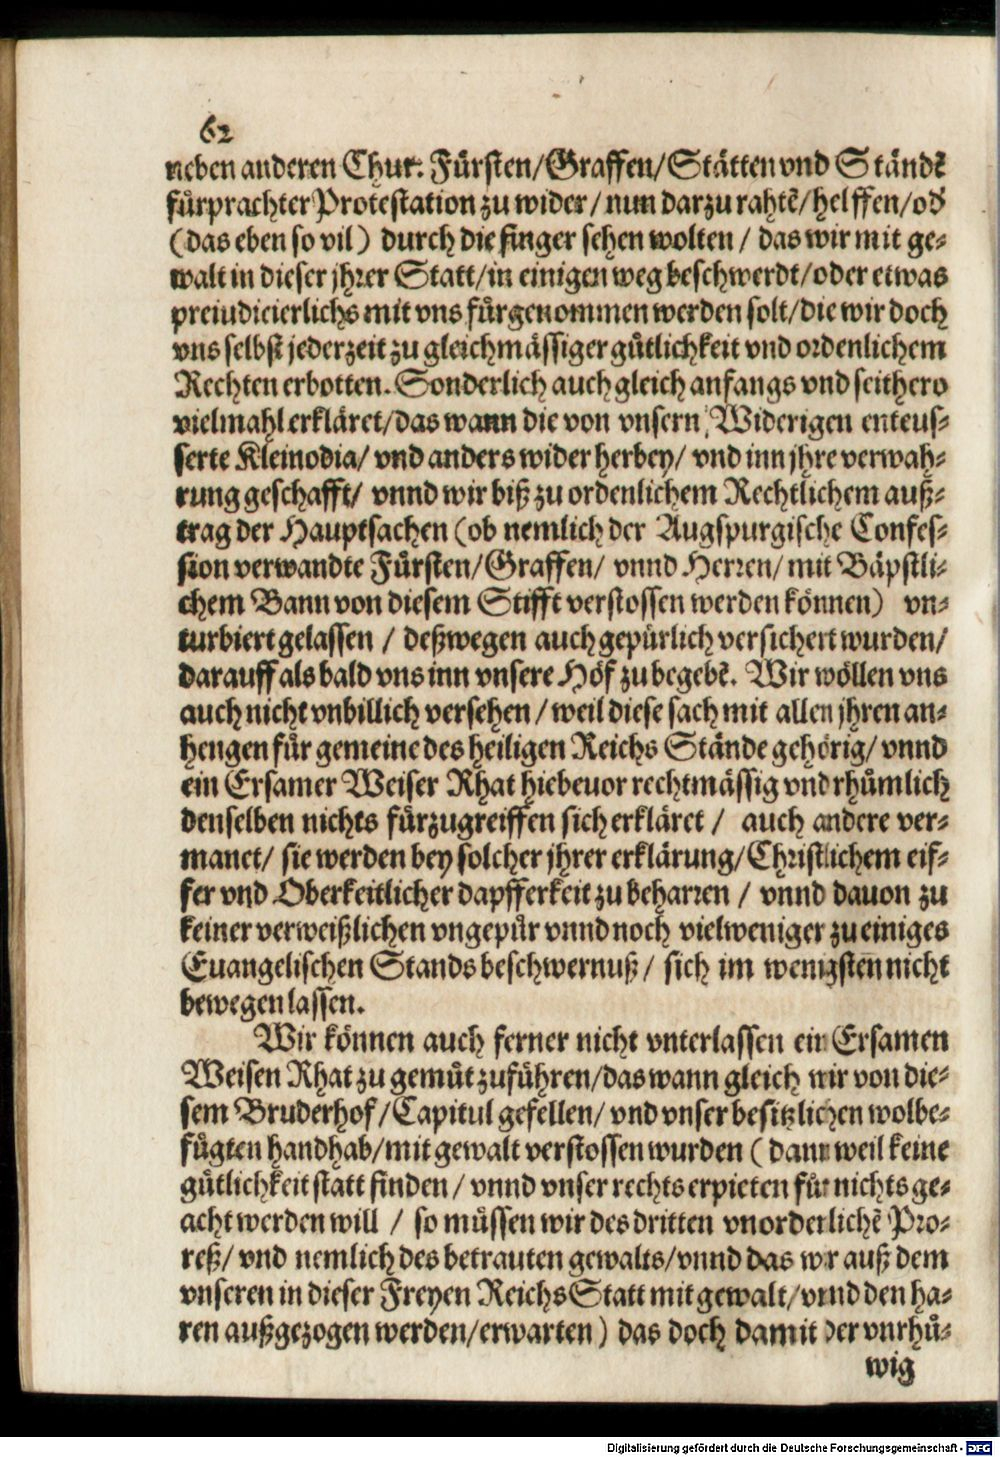 62
neben anderen Chur: Fürsten/Graffen/Stätten vnd Ständẽ
fürprachter Protestation zu wider/nun darzu rahtẽ/helffen/oď
(das eben so vil) durch die finger sehen wolten/das wir mit ge-
walt in dieser jhrer Statt/in einigen weg beschwerdt/oder etwas
preiudicierlichs mit vns fürgenommen werden solt/die wir doch
vns selbst jederzeit zu gleichmässiger gütlichkeit vnd ordenlichem
Rechten erbotten. Sonderlich auch gleich anfangs vnd seithero
vielmahl erkläret/das wann die von vnsern Widerigen enteus-
serte Kleinodia/vnd anders wider herbey/vnd inn jhre verwah-
rung geschafft/vnnd wir biß zu ordenlichem Rechtlichem auß-
trag der Hauptsachen (ob nemlich der Augspurgische Confes-
sion verwandte Fürsten/Graffen/vnnd Herren/mit Bäpstli-
chem Bann von diesem Stifft verstossen werden können) vn-
turbiert gelassen/deßwegen auch gepürlich versichert wurden/
darauff als bald vns inn vnsere Höf zu begebẽ. Wir wöllen vns
auch nicht vnbillich versehen/weil diese sach mit allen jhren an-
hengen für gemeine des heiligen Reichs Stände gehörig/vnnd
ein Ersamer Weiser Rhat hiebeuor rechtmässig vnd rhümlich
denselben nichts fürzugreiffen sich erkläret/auch andere ver-
manet/sie werden bey solcher jhrer erklärung/Christlichem eif-
fer vnd Oberkeitlicher dapfferkeit zu beharren/vnnd dauon zu
keiner verweißlichen vngepür vnnd noch vielweniger zu einiges
Euangelischen Stands beschwernuß/sich im wenigsten nicht
bewegen lassen.
Wir können auch ferner nicht vnterlassen ein Ersamen
Weisen Rhat zu gemüt zuführen/das wann gleich wir von die-
sem Bruderhof/Capitul gesellen/vnd vnser besitzlichen wolbe-
fügten handhab/mit gewalt verstossen wurden (dann weil keine
gütlichkeit statt finden/vnnd vnser rechts erpieten für nichts ge-
acht werden will/so müssen wir des dritten vnordenlichẽ Pro-
reß/vnd nemlich des betrauten gewalts/vnnd das wir auß dem
vnseren in dieser Freyen Reichs Statt mit gewalt/vnnd den ha-
ren außgezogen werden/erwarten) das doch damit der vnrhü-
wig
Digitalisierung gefördert durch die Deutsche Forschungsgemeinschaft - DFG